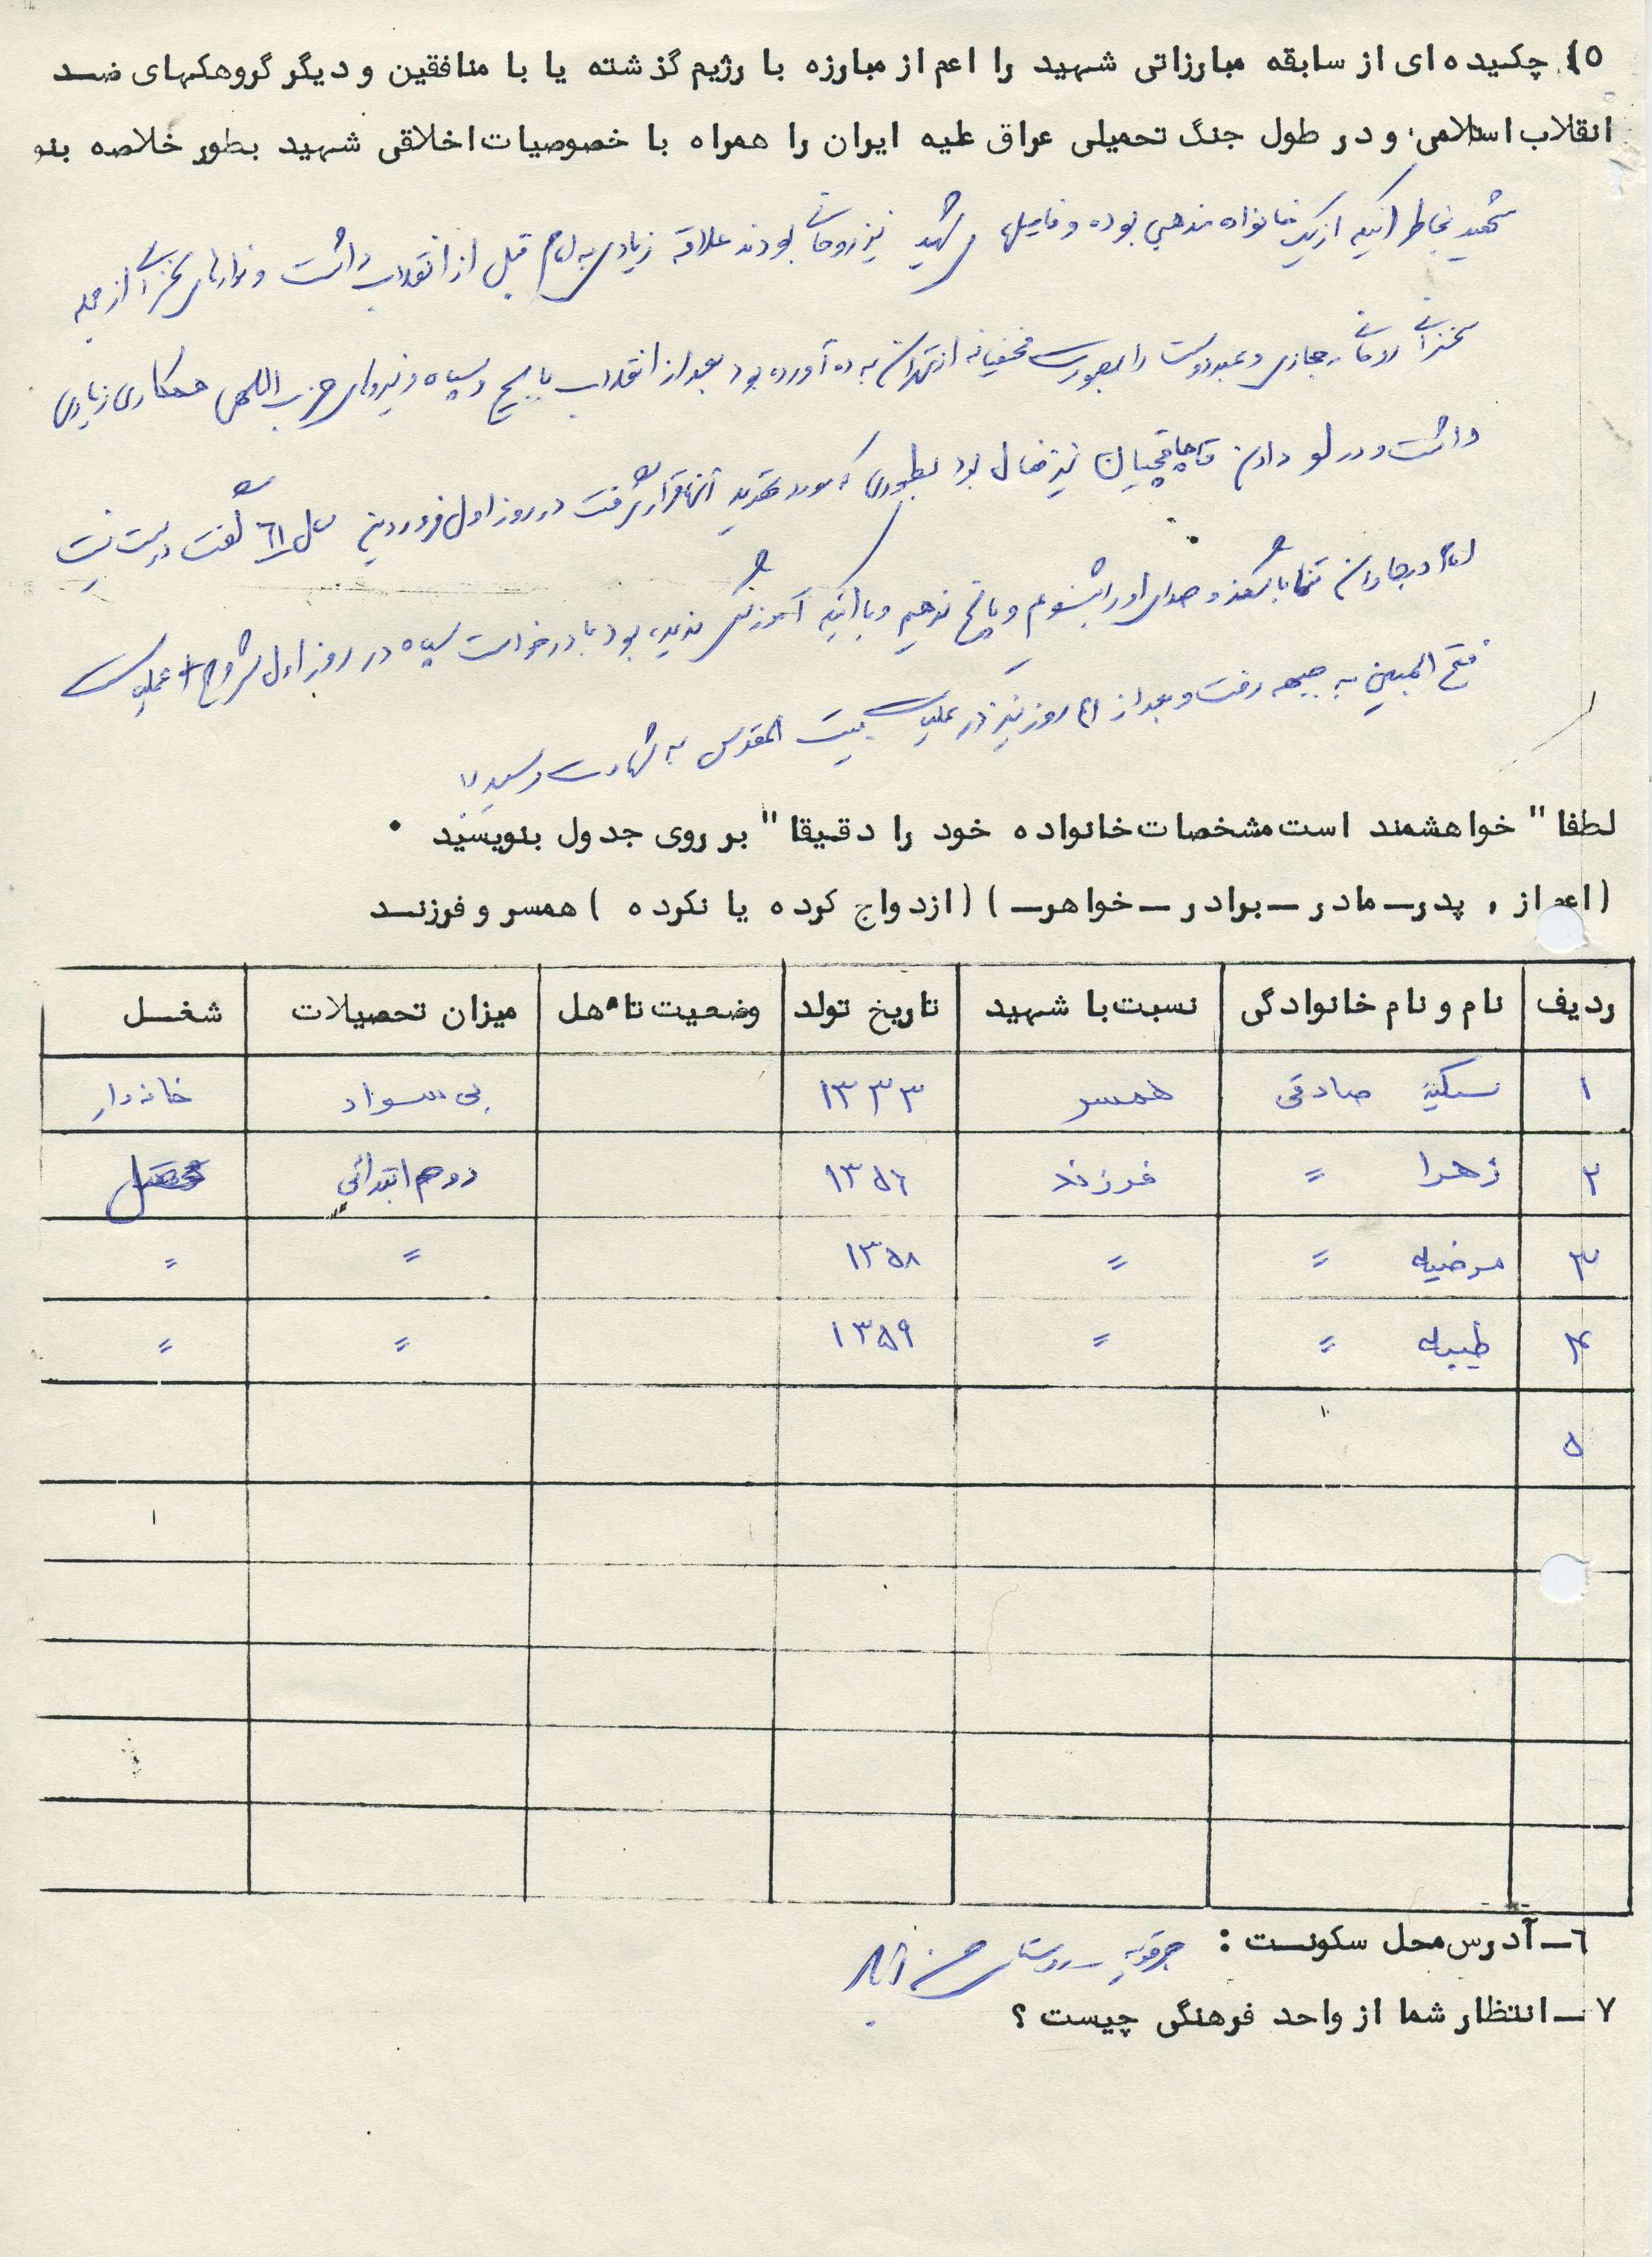 ۵) چکیده ای از سابقه مبارزاتی شهید را اعم از مبارزه با رژیم گذشته یا با منافقین و دیگر گروهکهای ضد
انقلاب اسلامی و در طول جنگ تحمیلی عراق علیه ایران را همراه با خصوصیات اخلاقی شهید بطور خلاصه بنو
شهید بخاطر اینکه از یک خانواده مذهبی بوده و فامیلهای شهید نیز روحانی بودند علاقه زیادی به امام قبل از انقلاب داشت و نوارهای سخنرانی از جمله
سخنرانی روحانی حجازی و را بصورت مخفیانه از تهران به ده آورده بود بعد از انقلاب با بسیج و سپاه و نیروهای حزب اللهی همکاری زیادی
داشت و در لو دادن قاچاقچیان نیز فعال بود بطوری که مورد تهدید آنها قرار گرفت در روز اول فروردین سال ۶۱ گفت درست نیست
امام در جماران تنها با بگذرد و صدای او را بشنویم و پاسخ ندهیم و با اینکه آموزش ندیده بود با درخواست سپاه در روز اول شروع عملیات
فتح المبین به جبهه رفت و بعد از روز نیز در عملیات بیت المقدس به شهادت رسید
لطفا" خواهشمند است مشخصات خانواده خود را دقیقا" بر روی جدول بنویسید .
(اعم از , پدر ــ مادر ــ برادر ــ خواهر ــ ) (ازدواج کرده یا نکرده ) همسر و فرزند
ردیف نام و نام خانوادگی نسبت با شهید تاریخ تولد وضعیت تاهل میزان تحصیلات شغل
۱ سکینه صادقی همسر ۱۳۳۳ بی سواد خانه دار
۲ زهرا = فرزند ۱۳۵۶ دوم ابتدائی محصل
۳ مرضیه = = ۱۳۵۸ = =
۴ طیبه = = ۱۳۵۹ = =
۵
۶ــ آدرس محل سکونت : جرقویه روستای حسن آباد
۷ ــ انتظار شما از واحد فرهنگی چیست ؟